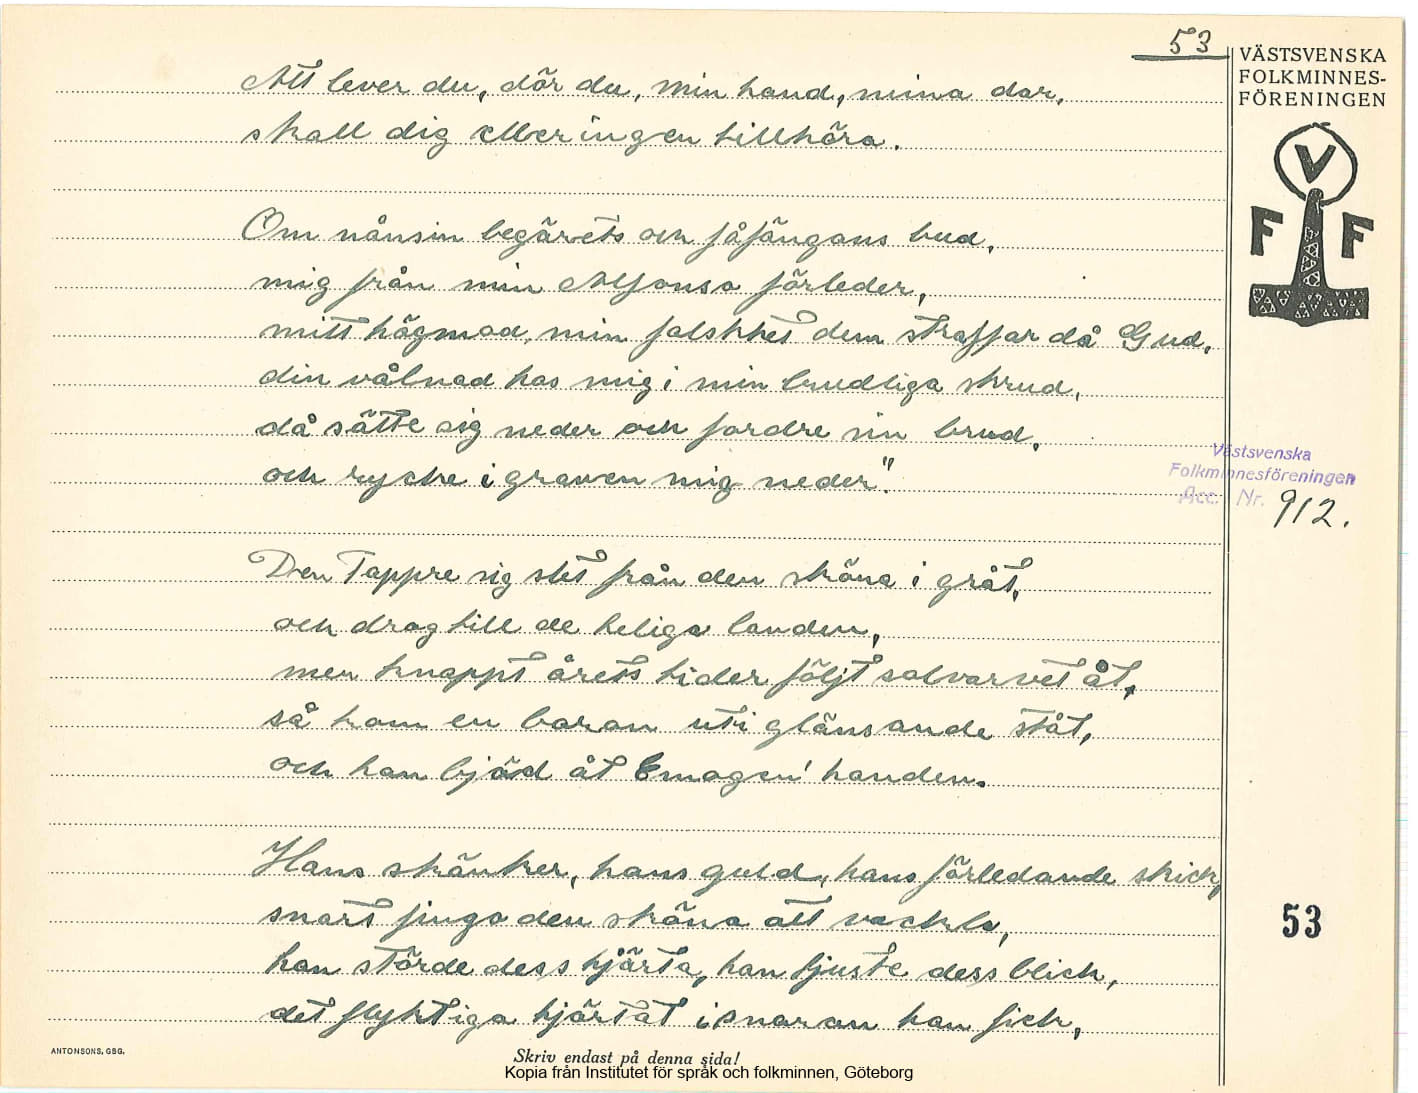 53
VÄSTSVENSKA
FOLKMINNES-
FÖRENINGEN
V
F F
Att lever du, dör du, min hand, mina dar,
skall dig eller ingen tillhöra.
Om nånsin begärets och fåfängans bud,
mig från min Alfonso förleder,
mitt högmod, min falskhet dem straffar då Gud,
din vålnad hos mig i min brudliga skrud,
då sätte sig neder och fordre sin brud,
och rycke i graven mig neder".
Den Tappre sig slet från den sköna i gråt,
och drog till de heliga landen,
men knappt årets tider följt solvarvet åt,
så kom en baron uti glänsande ståt,
och han bjöd åt Emogen' handen.
Hans skänker, hans guld, hans förledande skick,
snart fingo den sköna att vackla,
han störde dess hjärta, han tjuste dess blick,
det flyktiga hjärtat i snaran han fick,
Västsvenska
Folkminnesföreningen
Acc. Nr. 912.
53
ANTONSONS, GBG.
Skriv endast på denna sida!
Kopia från Institutet för språk och folkminnen, Göteborg